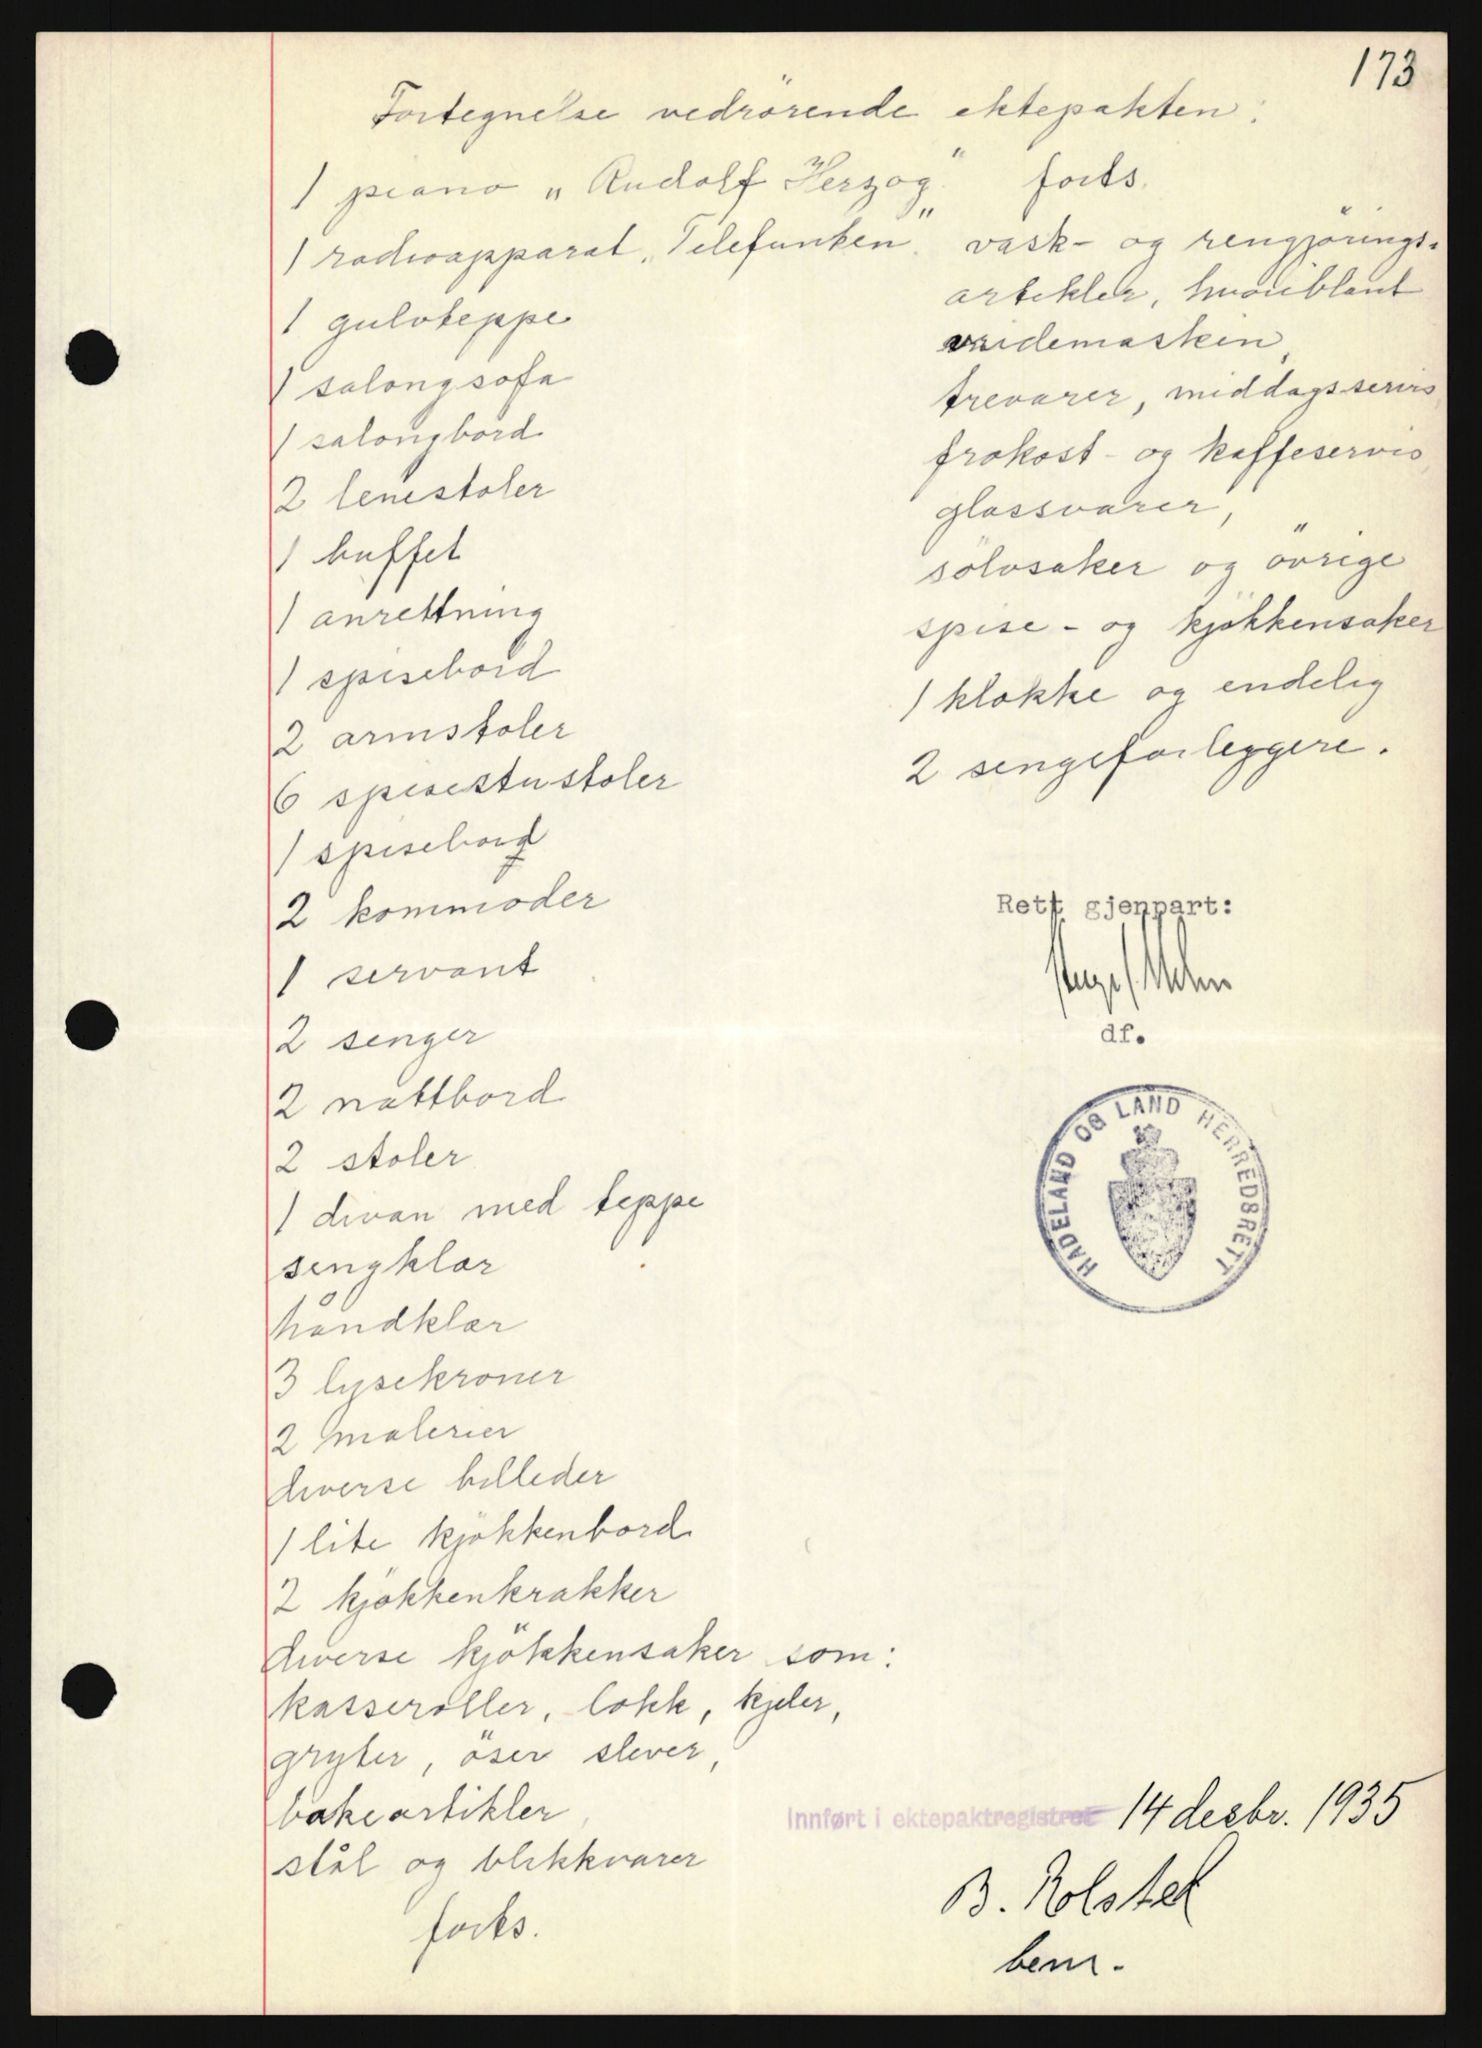 173
Fortegnelse vedrörende ektepakten:
1 piano „Rudolf Herzog"
1 radioapparat „Telefunken"
1 gulvteppe
1 salongsofa
1 salongbord
2 lenestoler
1 buffet
1 anrettning
1 spisebord
2 armstoler
6 spisestustoler
1 spisebord
2 kommoder
1 servant
2 senger
2 nattbord
2 stoler
1 divan med teppe
sengklær
håndklær
3 lysekroner
2 malerier
diverse billeder
1 lite kjökkenbord
2 kjökkenkrakker
diverse kjökkensaker som:
kasseroller, lokk, kjeler,
gryter, öser slever,
bakeartikler,
stål og blikkvarer
forts.
forts.
vask- og rengjörings-
artikler, hvoriblant
vridemaskin,
trevarer, middagsservis,
frokost- og kaffeservis,
glassvarer,
sölvsaker og övrige
spise- og kjökkensaker
1 klokke og endelig
2 sengeforleggere.
Rett gjenpart:
df.
HADELAND OG LAND HERREDSRETT
Innført i ektepaktregistret 14 desbr. 1935
B. Rolstad
bem.